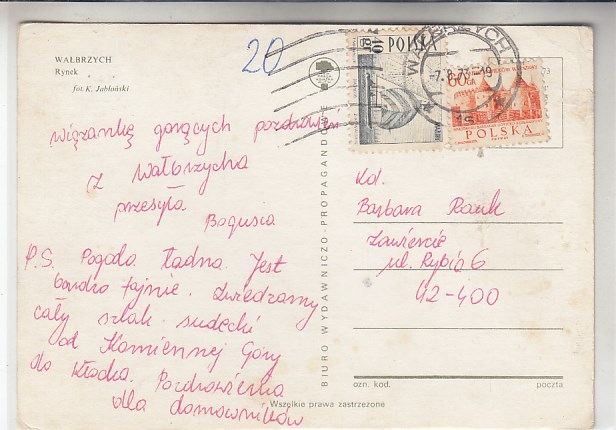 WAŁBRZYCH
Rynek
fot. K. Jabłoński
20
wiązankę gorących pozdrowień
z Wałbrzycha
przesyła
Bogusia
P.S. Pogoda ładna. Jest
bardzo fajnie. Zwiedzamy
cały szlak sudecki
od Kamiennej Góry
do Kłodzka. Pozdrowienia
dla domowników
BIURO WYDAWNICZO-PROPAGANDOWE
10 gr
POLSKA
WAŁBRZYCH
60 GR
POLSKA
Kol.
Barbara
Zawiercie
ul. Rybia 6
42-400
ozn. kod.
poczta
Wszelkie prawa zastrzeżone